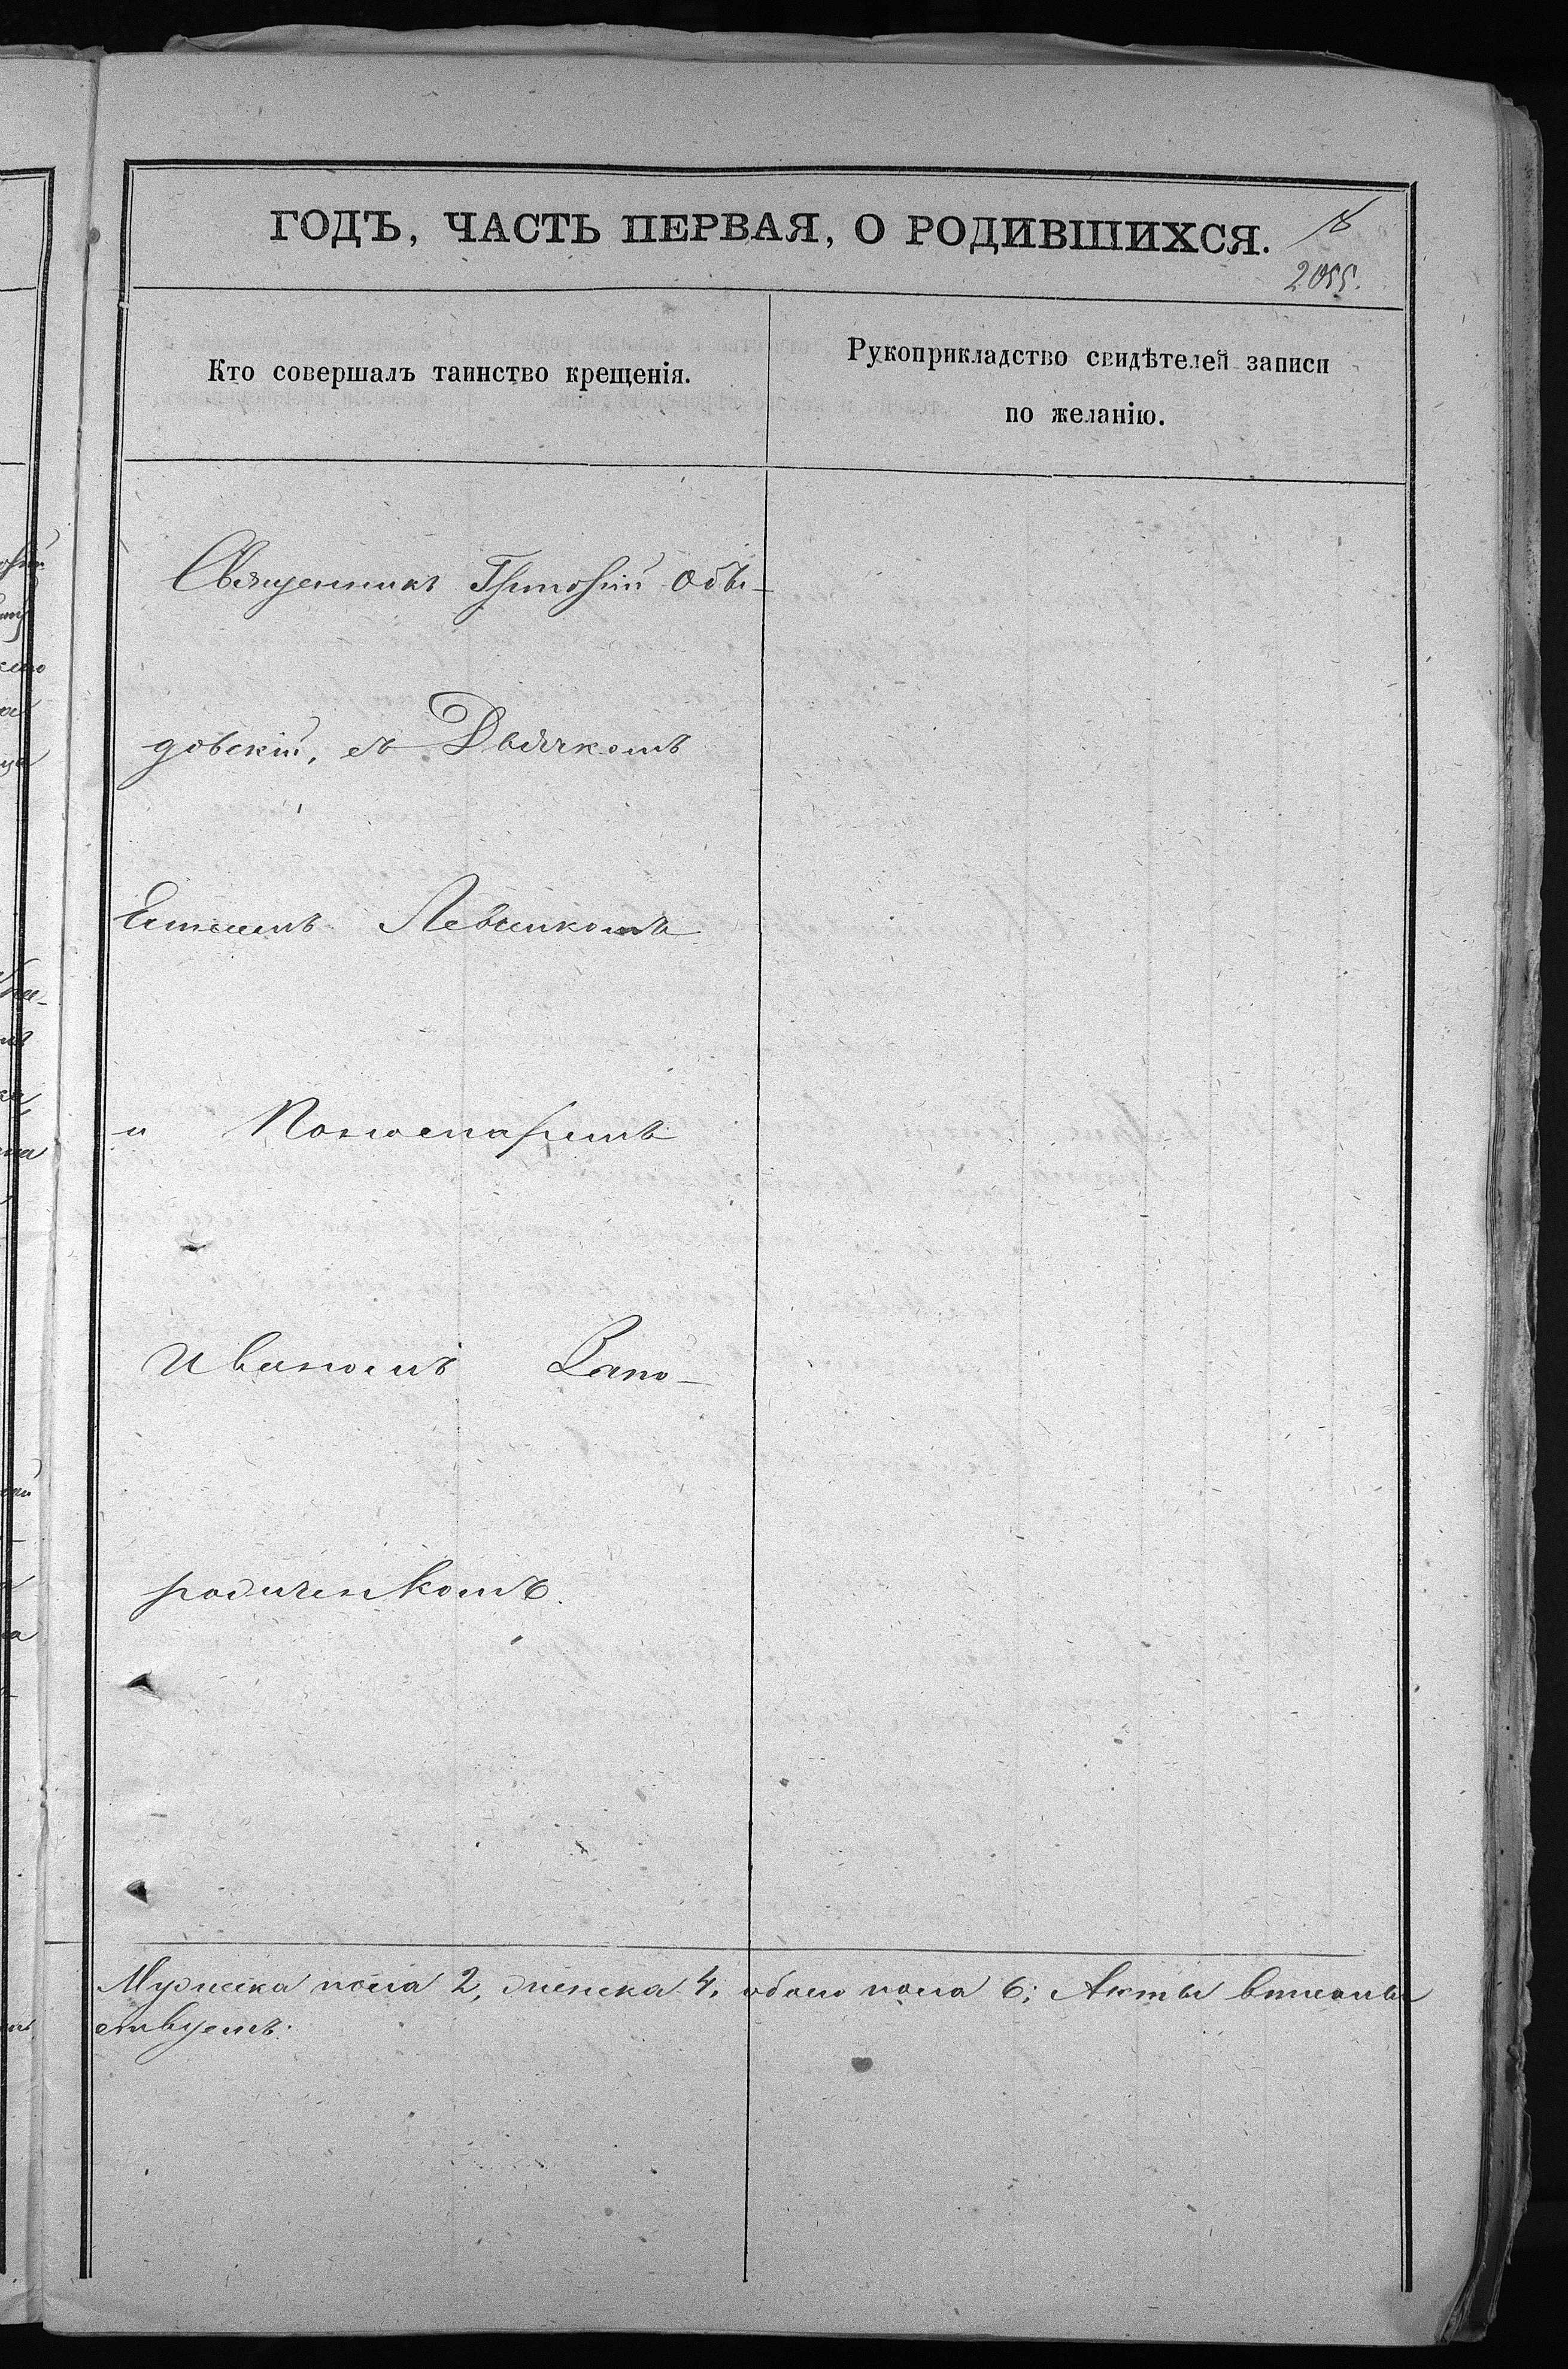 ГОДЪ, ЧАСТЬ ПЕРВАЯ, О РОДИВШИХСЯ.
2055.
Кто совершалъ таинство крещенія.
Рукоприкладство свидѣтелей записи
по желанію.
Священникъ Григорій Объ-
довскій, съ Дьячкомъ
Левицкомъ
и Пономаремъ
Иваномъ Запо-
родченкомъ.
Мужеска пола 2, женска 4, обоего пола 6; Акты
ствуетъ.